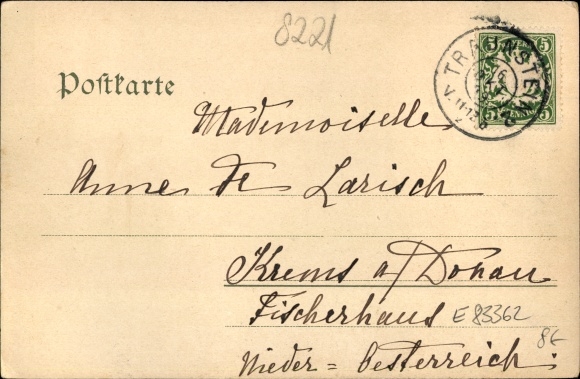 8221
5 5
TRAUNSTEIN
Postkarte
Mademoiselle
Anne de Larisch
Krems a/ Donau
Fischerhaus
E 83362
Nieder = Oesterreich.
8€